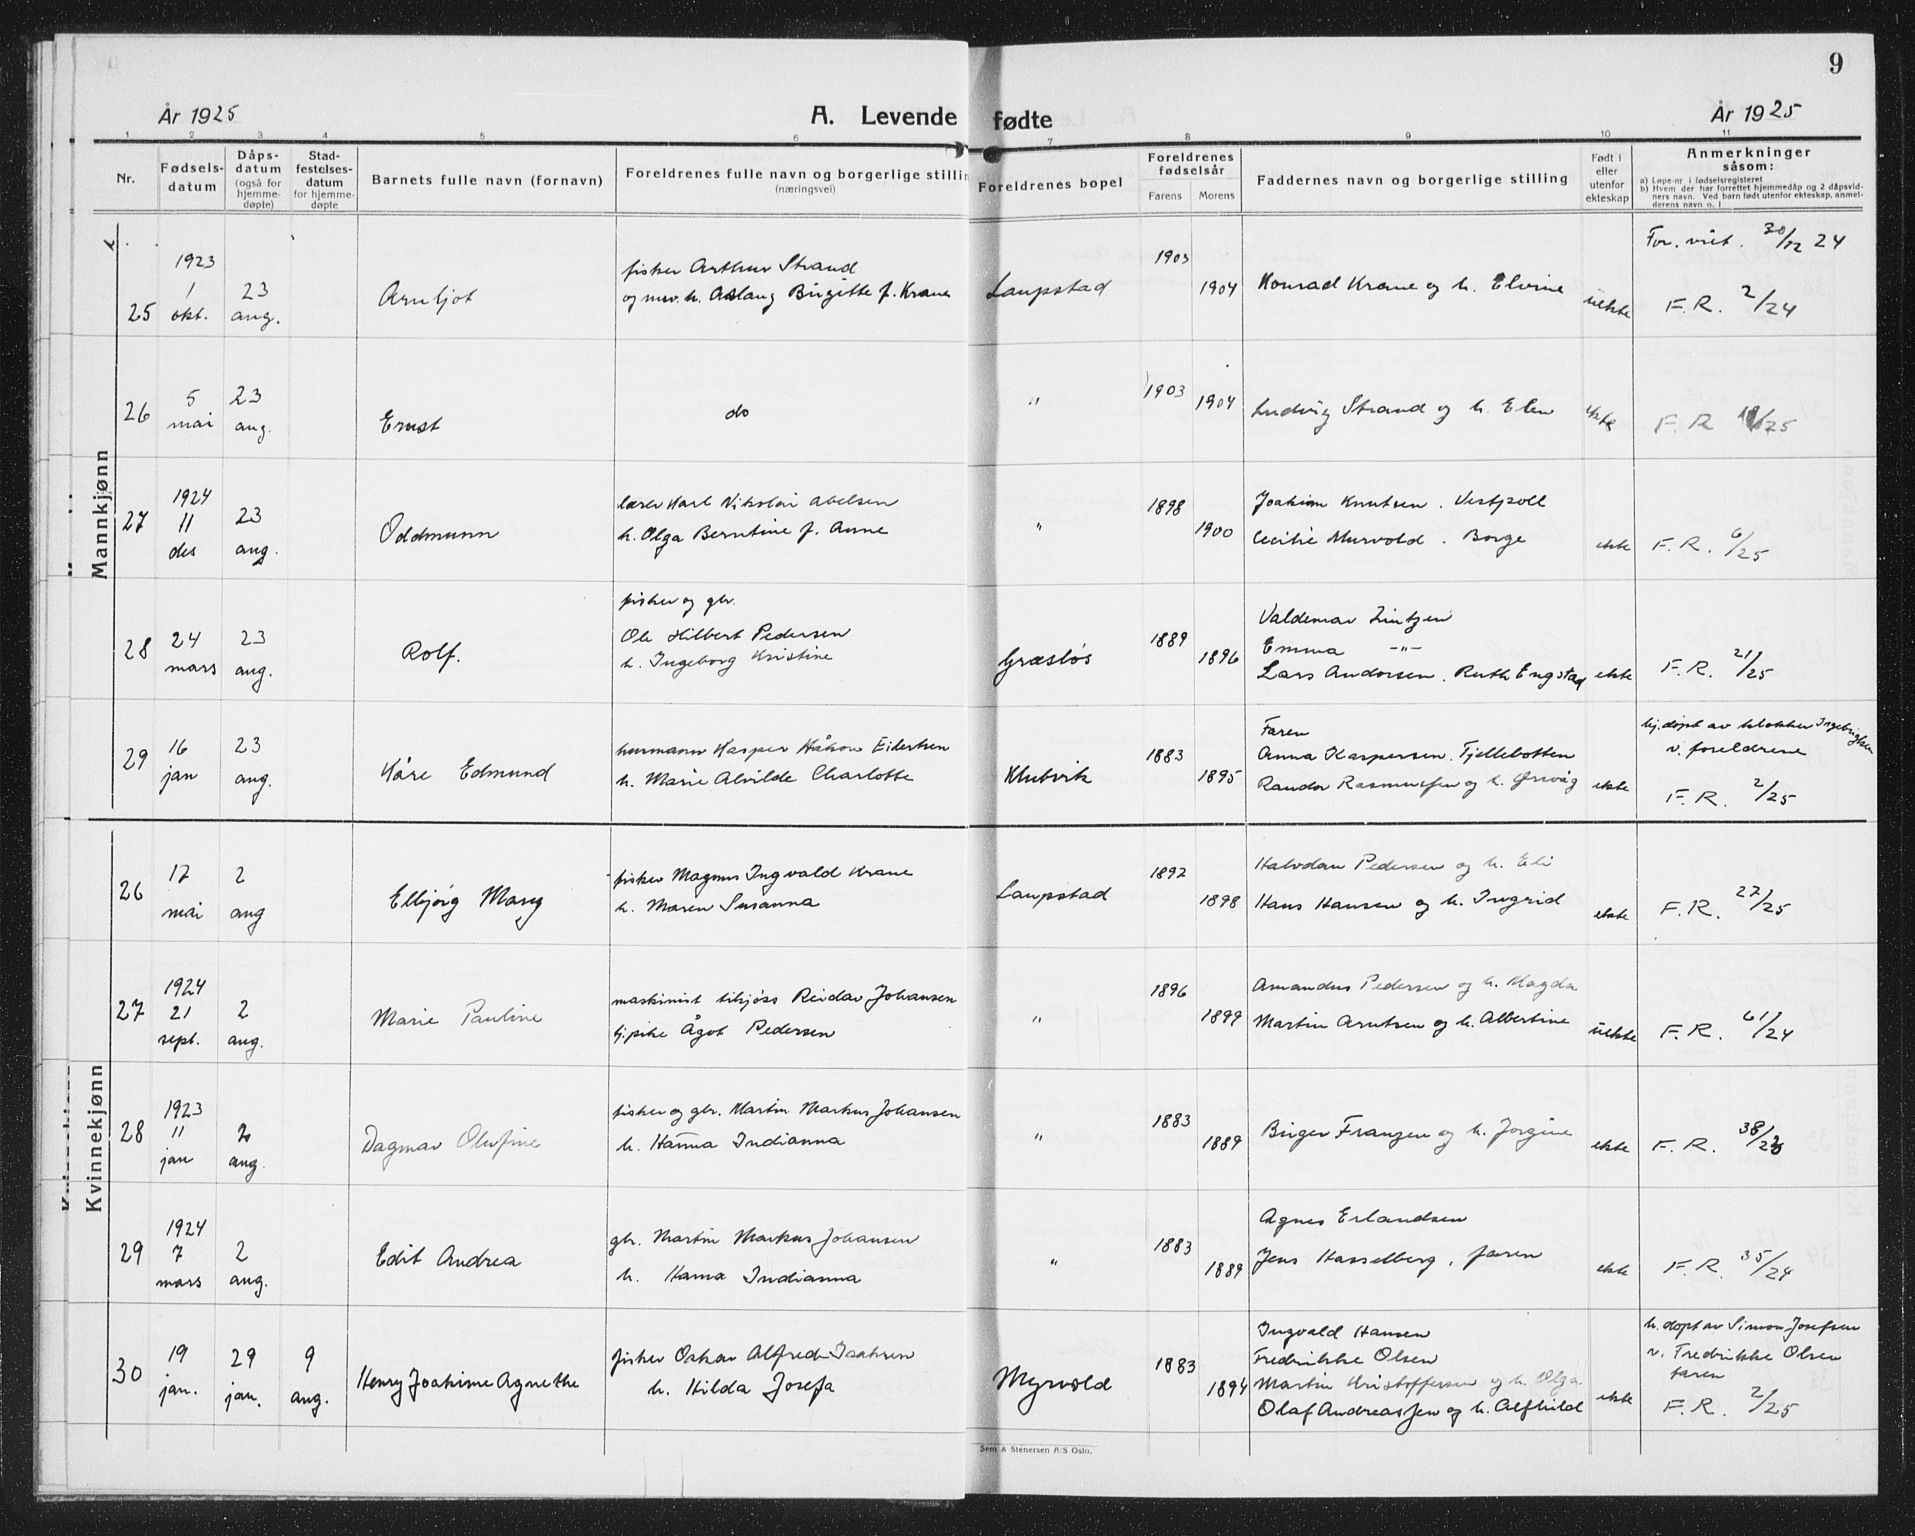 9
År 1925 A. Levende fødte År 1925
1 2 3 4 5 6 7 8 9 10 11
Nr. Fødsels-datum Dåps-datum (også for hjemme-døpte) Stad-festelses-datum for hjemme-døpte Barnets fulle navn (fornavn) Foreldrenes fulle navn og borgerlige stillin (næringsvei) Foreldrenes bopel Foreldrenes fødselsår Farens Morens Faddernes navn og borgerlige stilling Født i eller utenfor ekteskap Anmerkninger såsom:
a) Løpe-nr i fødselsregisteret
b) Hvem der har forrettet hjemmedåp og 2 dåpsvid-
ners navn. Ved barn født utenfor ekteskap, anmel-
derens navn o. l.
Mannkjønn
1923 fisker Arthur Strand 1903 For. viet. 30/12 24
25 1 okt. 23 aug. Arnljot og h. Aslaug Birgitte f. Krane Laupstad 1904 Konrad Krane og h. Elvine uekte F. R. 2/24
26 5 mai 23 aug. Ernst do " 1903 1904 Ludvig Strand og h. Elen ekte F. R /25
1924 lærer Karl Nikolai Abelsen 1898 Joakim Knutsen. Vestpoll
27 11 des 23 aug. Oddmunn h. Olga Berntine f. Arne " 1900 Cecilie Murvold. Borge ekte F. R. 6/25
fisker og gbr. Valdemar Lintzen
28 24 mars 23 aug. Rolf. Ole Hilbert Pedersen 1889 Emma -"-
h. Ingeborg Kristine Græsløs 1896 Lars Andorsen. Ruth Engstad ekte F. R. 21/25
Faren hj.døpt av klokker Ingebrigtsen
29 16 jan 23 aug. Kåre Edmund husmann Kasper Håkon Eidertsen 1883 Anna Kaspersen. Fjellbotten v. foreldrene
h. Marie Alvilde Charlotte 1895 Rasmussen og h. Ørsvåg ekte F. R. 2/25
Kvinnekjønn
26 17 mai 2 aug Elbjørg Mary fisker Magnus Ingvald Krane 1892 Halvdan Pedersen og h. Eli
h. Maren Susanna Laupstad 1898 Hans Hansen og h. Ingrid ekte F. R. 27/25
1924 1896 Amandus Pedersen og h. Magda
27 21 sept. 2 aug. Marie Pauline maskinist Reidar Johansen
pike Ågot Pedersen " 1899 Martin Arntsen og h. Albertine uekte F. R. 61/24
1923 fisker og gbr. Martin Markus Johansen 1883
28 11 jan 2 aug. Dagmar Olufine h. Hanna Indianna " 1889 Birger Franzen og h. Jorgine ekte F. R. 38/23
1924 gbr. Martin Markus Johansen 1883 Agnes Erlandsen
29 7 mars 2 aug. Edit Andrea h. Hanna Indianna " 1889 Jens Hasselberg, faren ekte F. R. 35/24
Ingvald Hansen h. døpt av Simon Josefsen
30 19 jan. 29 jan. 9 aug. Henry Joakime Agnethe fisker Oskar Alfred Isaksen 1883 Fredrikke Olsen v. Fredrikke Olsen
h. Hilda Josefa Myrvold 1894 Martin Kristoffersen og h. Olga faren
Olaf Andreassen og h. Alfhild ekte F. R. 2/25
Sem & Stenersen A/S Oslo.